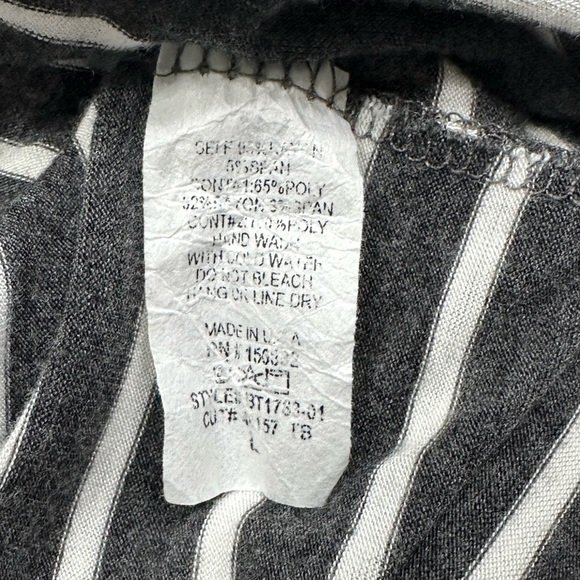 SELF 95% RAYON
5%SPAN
CONT#1:65%POLY
32%RAYON 3%SPAN
CONT#2:100%POLY
HAND WASH
WITH COLD WATER
DO NOT BLEACH
HANG OR LINE DRY
MADE IN U.S.A
RN #
STYLE# BT1783-01
CUT#
L